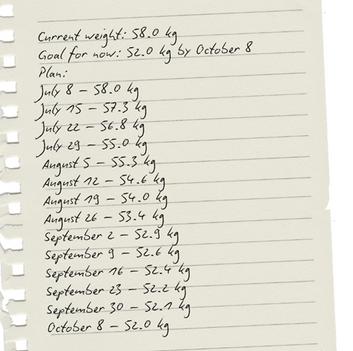 Current weight: 58.0 kg
Goal for now: 52.0 kg by October 8
Plan:
July 8 – 58.0 kg
July 15 – 57.3 kg
July 22 – 56.8 kg
July 29 – 55.0 kg
August 5 – 55.3 kg
August 12 – 54.6 kg
August 19 – 54.0 kg
August 26 – 53.4 kg
September 2 – 52.9 kg
September 9 – 52.6 kg
September 16 – 52.4 kg
September 23 – 52.2 kg
September 30 – 52.1 kg
October 8 – 52.0 kg